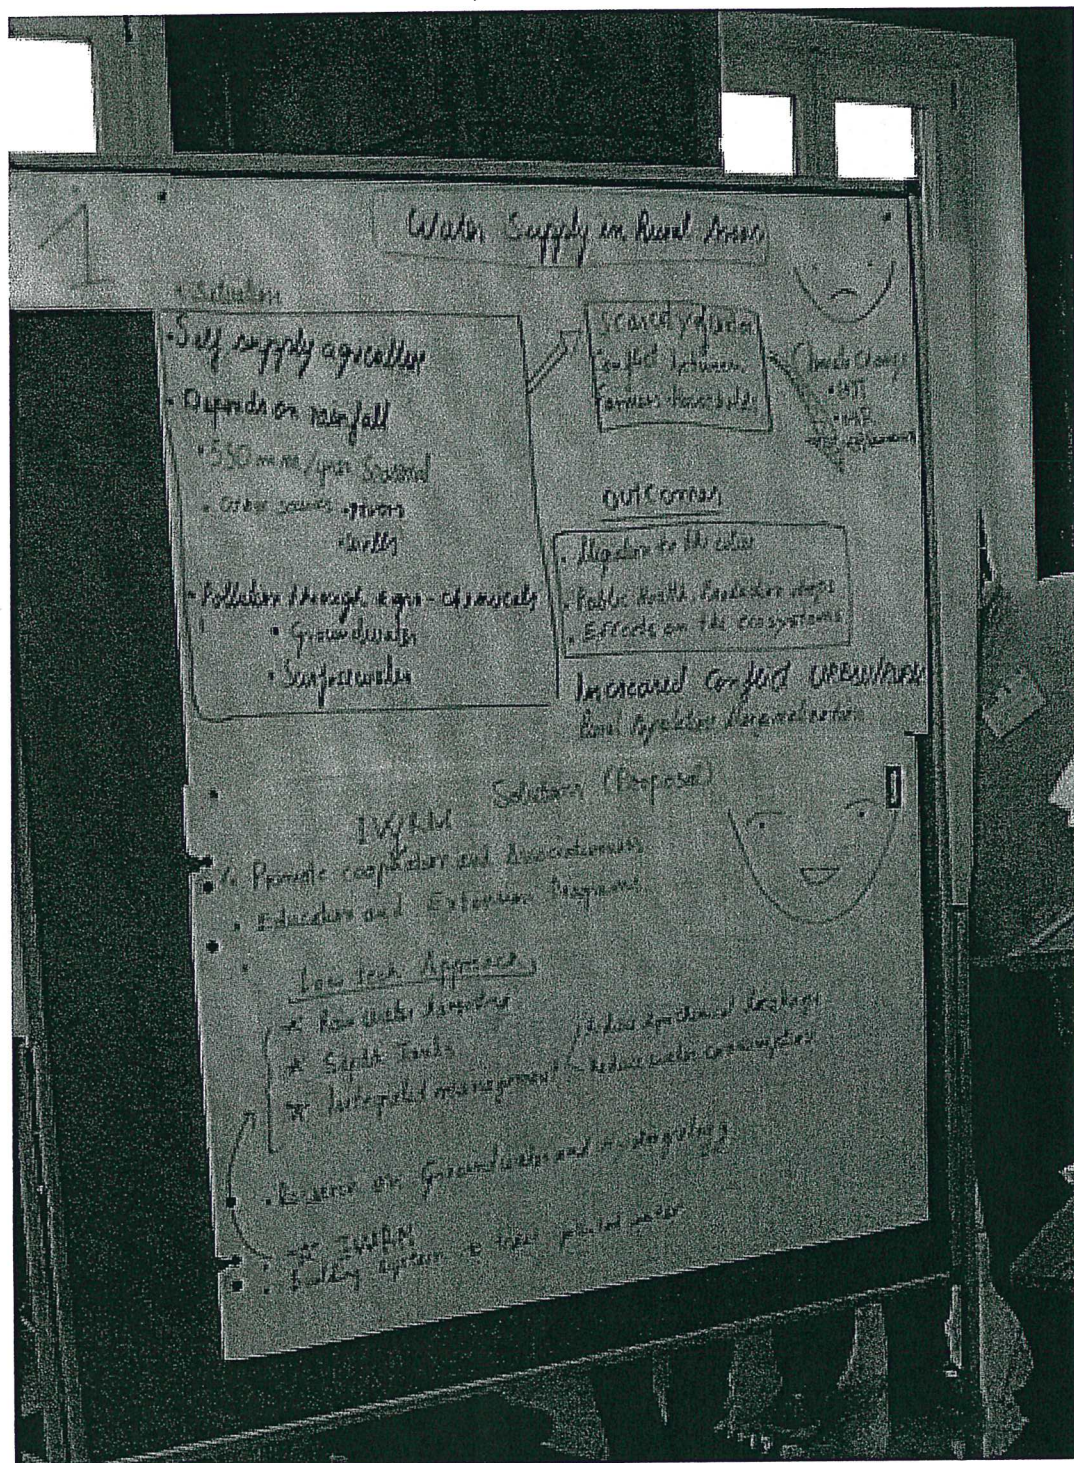 1
Water Supply in Rural Areas
• Situation
• Self supply agriculture
• Depends on rainfall
• 550 mm/year Seasonal
• other sources • rivers
• wells
• Pollution through agro-chemicals
• Groundwater
• Surfacewater
Scarcity of water
Conflict between
farmers-households
Climate change
outcomes
• Migration to the cities
• Public Health, Production drops
• Effects on the ecosystems
Increased conflict URBAN/RURAL
Rural Population Marginalization
Solution (Proposal)
IWRM
• Promote cooperation and Associationism
• Education and Extension Programs
Low tech Approach
* Rain water harvesting
* Septic Tanks
* Integrated management
reduce water consumption
• on Groundwater and Hydrogeology
* IWRM
• Building system to treat polluted water